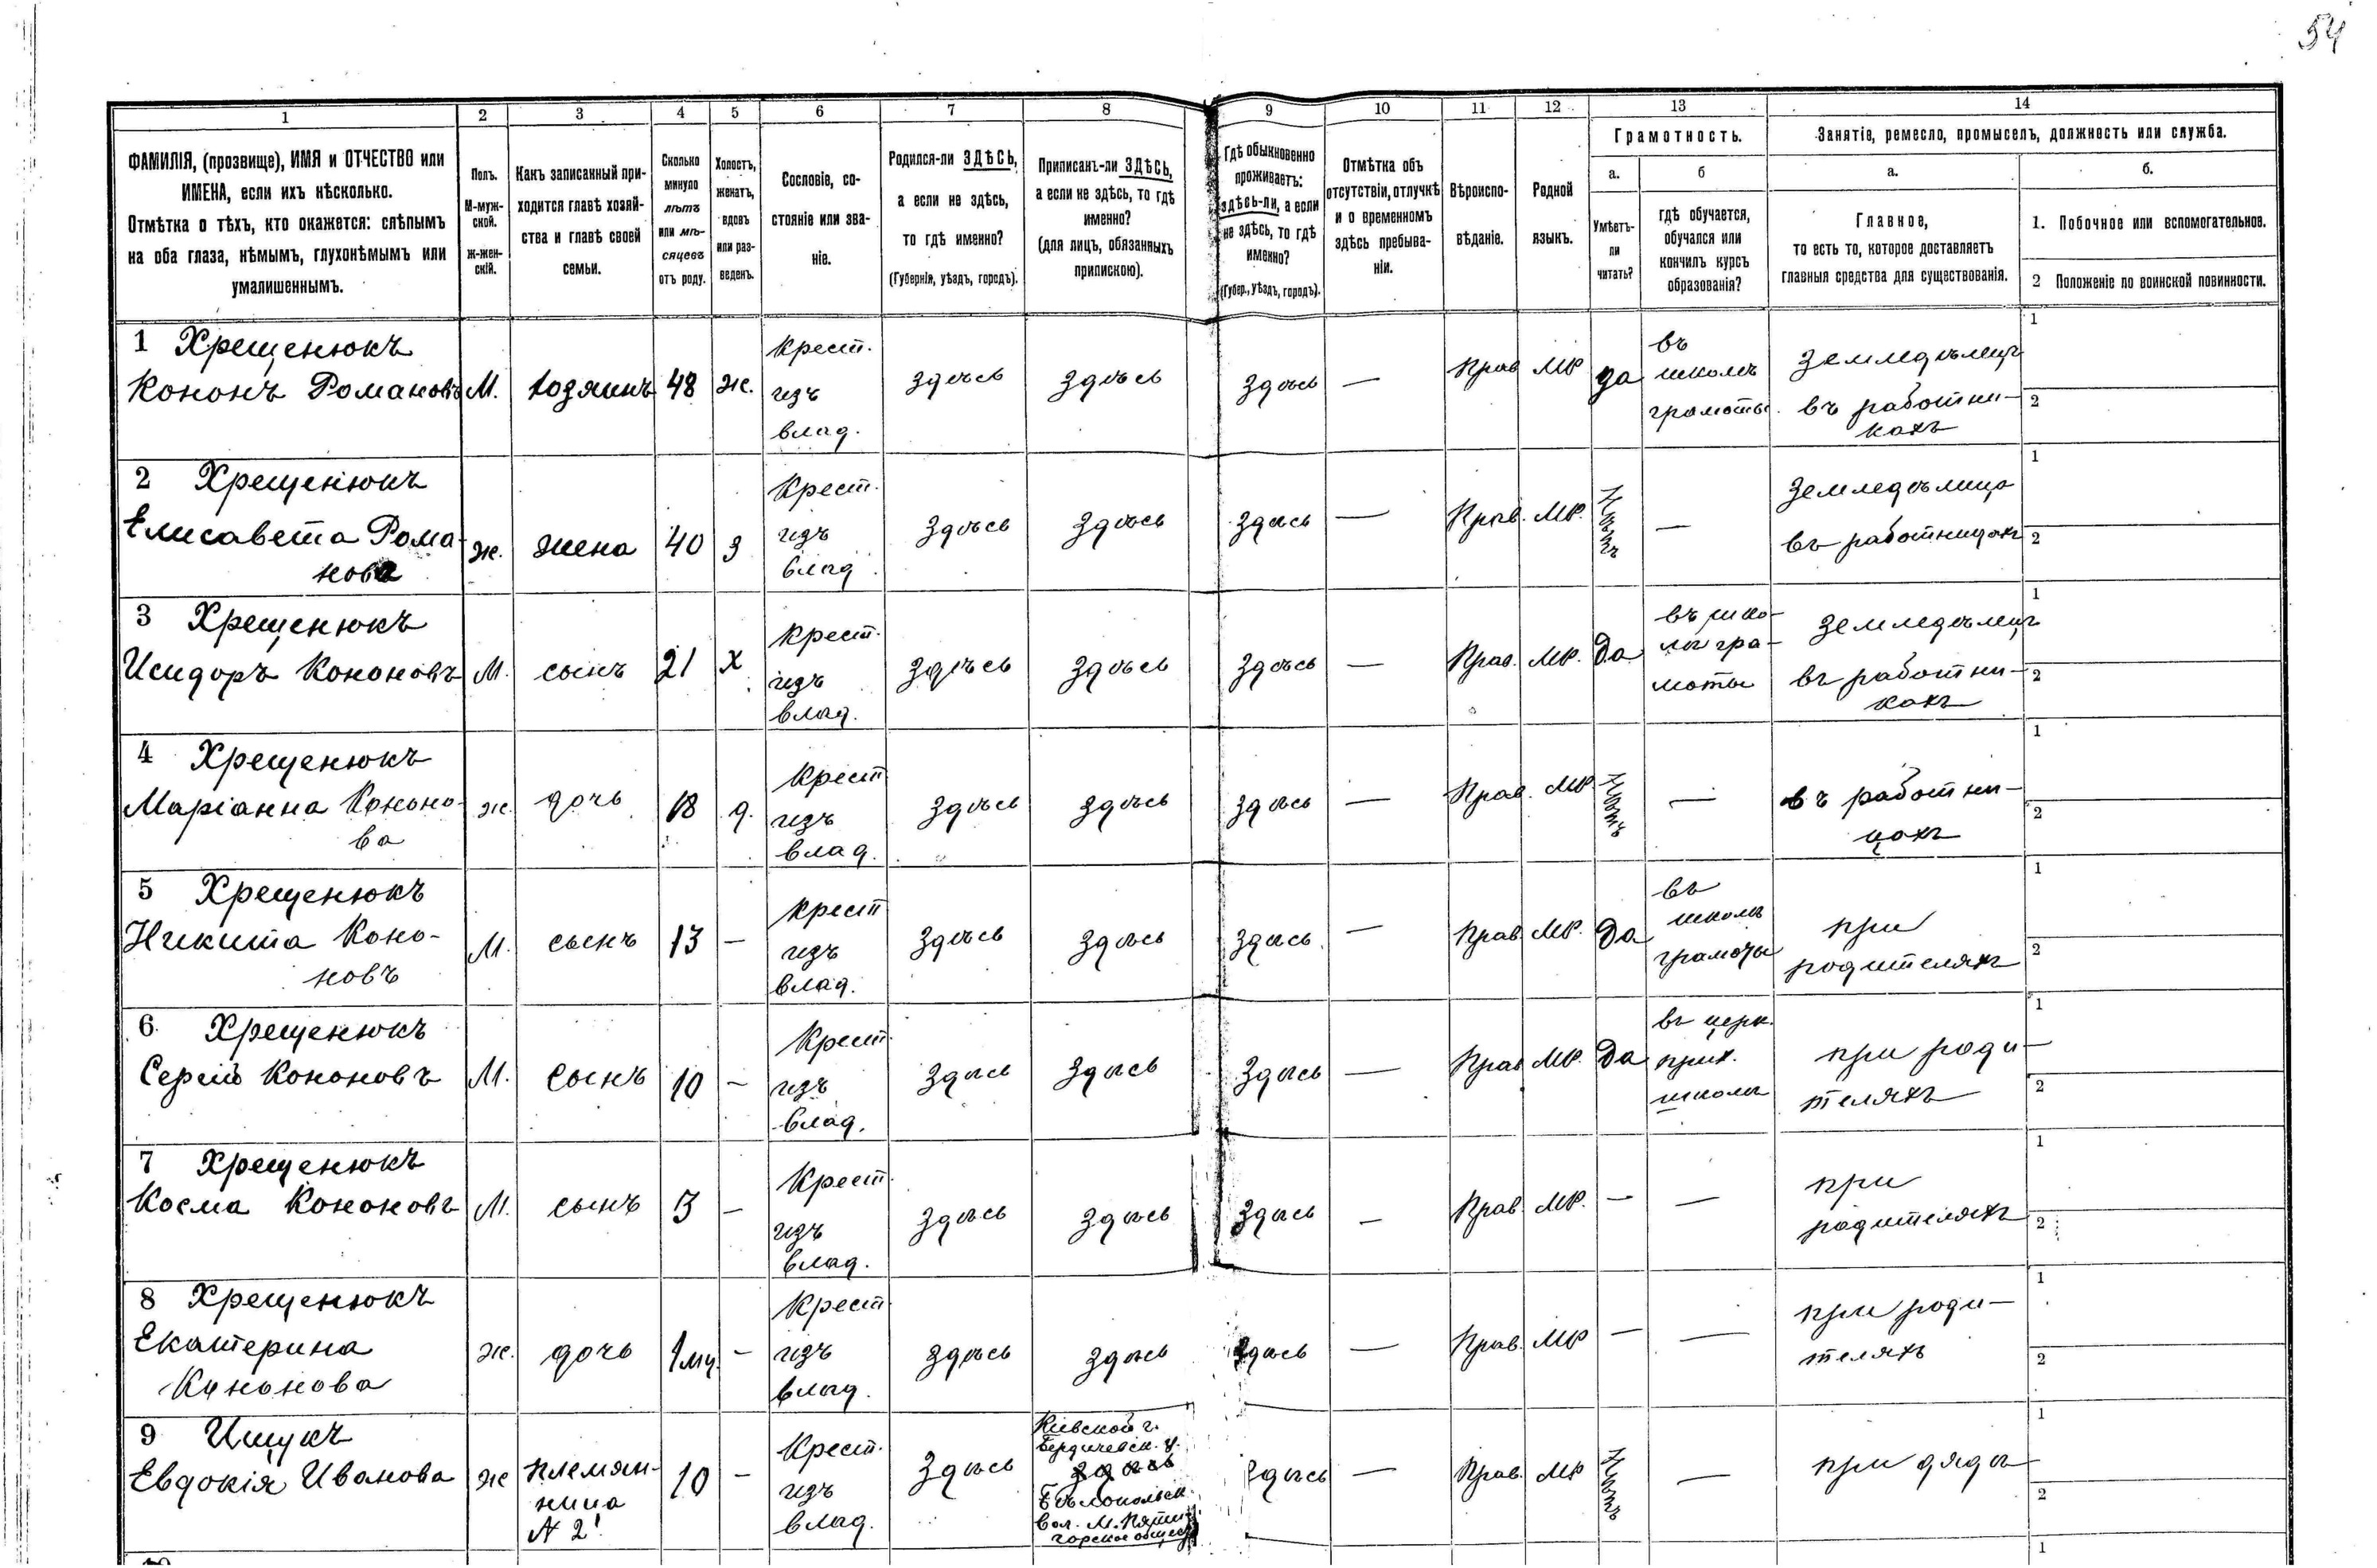 54
1 2 3 4 5 6 7 8 9 10 11 12 13 14
ФАМИЛІЯ, (прозвище), ИМЯ и ОТЧЕСТВО или
ИМЕНА, если ихъ нѣсколько.
Отмѣтка о тѣхъ, кто окажется: слѣпымъ
на оба глаза, нѣмымъ, глухонѣмымъ или
умалишеннымъ.
Полъ.
М-муж-
ской.
ж-жен-
скій.
Какъ записанный при-
ходится главѣ хозяй-
ства и главѣ своей
семьи.
Сколько
минуло
лѣтъ
или мѣ-
сяцевъ
отъ роду.
Холостъ,
женатъ,
вдовъ
или раз-
веденъ.
Сословіе, со-
стояніе или зва-
ніе.
Родился-ли ЗДѢСЬ,
а если не здѣсь,
то гдѣ именно?
(Губернія, уѣздъ, городъ).
Приписанъ-ли ЗДѢСЬ,
а если не здѣсь, то гдѣ
именно?
(для лицъ, обязанныхъ
припискою).
Гдѣ обыкновенно
проживаетъ:
здѣсь-ли, а если
не здѣсь, то гдѣ
именно?
(Губер., уѣздъ, городъ).
Отмѣтка объ
отсутствіи, отлучкѣ
и о временномъ
здѣсь пребыва-
ніи.
Вѣроиспо-
вѣданіе.
Родной
языкъ.
Грамотность.
а.
Умѣетъ-
ли
читать?
б
гдѣ обучается,
обучался или
кончилъ курсъ
образованія?
Занятіе, ремесло, промыселъ, должность или служба.
а.
Главное,
то есть то, которое доставляетъ
главныя средства для существованія.
б.
1. Побочное или вспомогательное.
2 Положеніе по воинской повинности.
1 Хрещенюкъ
Кононъ Романовъ
М.
хозяинъ
48
ж.
Крест.
изъ
влад.
здѣсь
здѣсь
здѣсь
—
Прав
МР
да
въ
школѣ
грамоты.
Земледѣлецъ
въ работни-
кахъ
1
2
2 Хрещенюкъ
Елисавета Рома-
нова
ж.
жена
40
з
Крест.
изъ
влад
здѣсь
здѣсь
здѣсь
—
Прав.
МР.
Нѣтъ
—
Земледѣлица
въ работницахъ
1
2
3 Хрещенюкъ
Исидоръ Кононовъ
М.
сынъ
21
х
Крест.
изъ
влад.
здѣсь
здѣсь
здѣсь
—
Прав.
МР.
Да
въ шко-
лѣ гра-
моты
Земледѣлецъ
въ работни-
кахъ
1
2
4 Хрещенюкъ
Маріанна Кононо-
ва
ж.
дочь
18
д.
Крест
изъ
влад.
здѣсь
здѣсь
здѣсь
—
Прав.
МР
Нѣтъ
—
въ работни-
цахъ
1
2
5 Хрещенюкъ
Никита Коно-
новъ
М.
сынъ
13
—
Крест
изъ
влад.
здѣсь
здѣсь
здѣсь.
—
Прав
МР.
Да
въ
школѣ
грамоты
при
родителяхъ
1
2
6 Хрещенюкъ
Сергій Кононовъ
М.
сынъ
10
—
Крест
изъ
влад.
здѣсь
здѣсь
здѣсь
—
Прав
МР.
Да
въ церк.
прих.
школѣ
при роди-
теляхъ
1
2
7 Хрещенюкъ
Косма Кононовъ
М.
сынъ
3
—
Крест
изъ
влад.
здѣсь
здѣсь
здѣсь
—
Прав.
МР.
—
—
при
родителяхъ
1
2
8 Хрещенюкъ
Екатерина
Кононова
ж.
дочь
1
—
Крест
изъ
влад.
здѣсь
здѣсь
здѣсь
—
Прав.
МР
—
—
при роди-
теляхъ
1
2
9 Ищукъ
Евдокія Иванова
ж
племян-
ница
№ 2
10
—
Крест.
изъ
влад.
здѣсь
Кіевской г.
Бердичевск. у.
здѣсь
Бѣлопольск.
вол. М. Пяти-
горское общест
здѣсь
—
Прав.
МР
Нѣтъ
—
при дядѣ
1
2
1